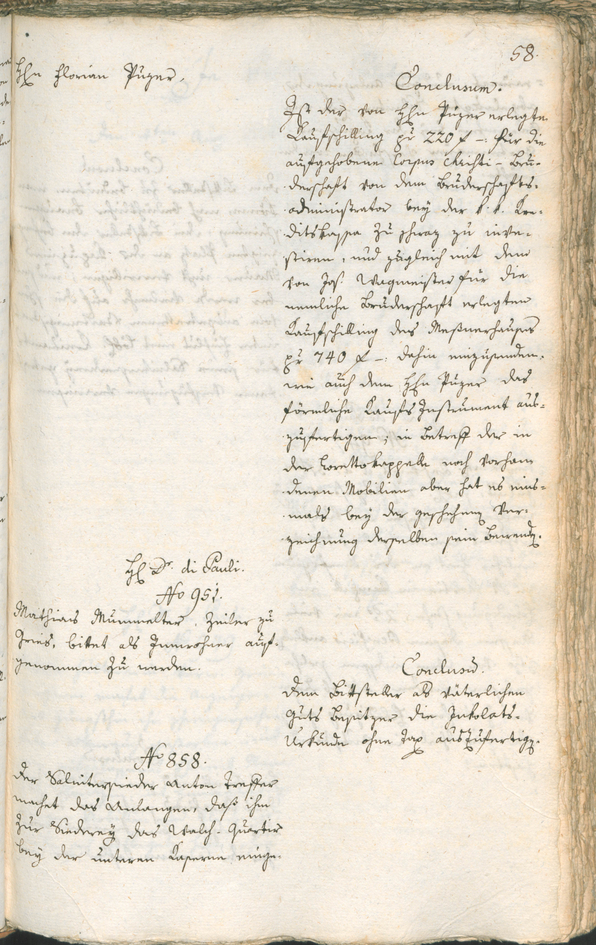 58.
Hhn Florian Puzer.
Conclusum.
Ist der von Hhn Puzer erlegte
Kaufschilling pr 220 f – für die
aufgehobene Corpus Christi-Bru-
derschaft von dem Bruderschafts-
administrator bey der k. k. Kre-
ditskassa zu Schwaz zu inve-
stiren, und zugleich mit dem
von Jos. Wagmeister für die
nemliche Bruderschaft erlegten
Kaufschilling des Meßnerhauses
pr 740 f –. dahin einzusenden,
wie auch dem Hhn Puzer das
förmliche Kaufs Instrument aus-
zufertigen; in Betreff der in
der Lorettokappelle noch vorhan
denen Mobilien aber hat es ein-
mals bey der geschehenen Ver-
zeichnung derselben sein Bewend.
H. Dr. di Pauli.
No 951.
Mathias Mummelter, Zeiler zu
Gries, bittet als Innwohner auf-
genommen zu werden.
Conclus.
dem Bittsteller als väterlichen
Guts Besitzer die Inkolats-
Urkunde ohne Tax auszufertig.
No 858.
Der Saliterpieder Anton Treffer
machet das Anlangen, daß ihm
zur Siederey das Walch-Quartier
bey der unteren Kaserne einge-